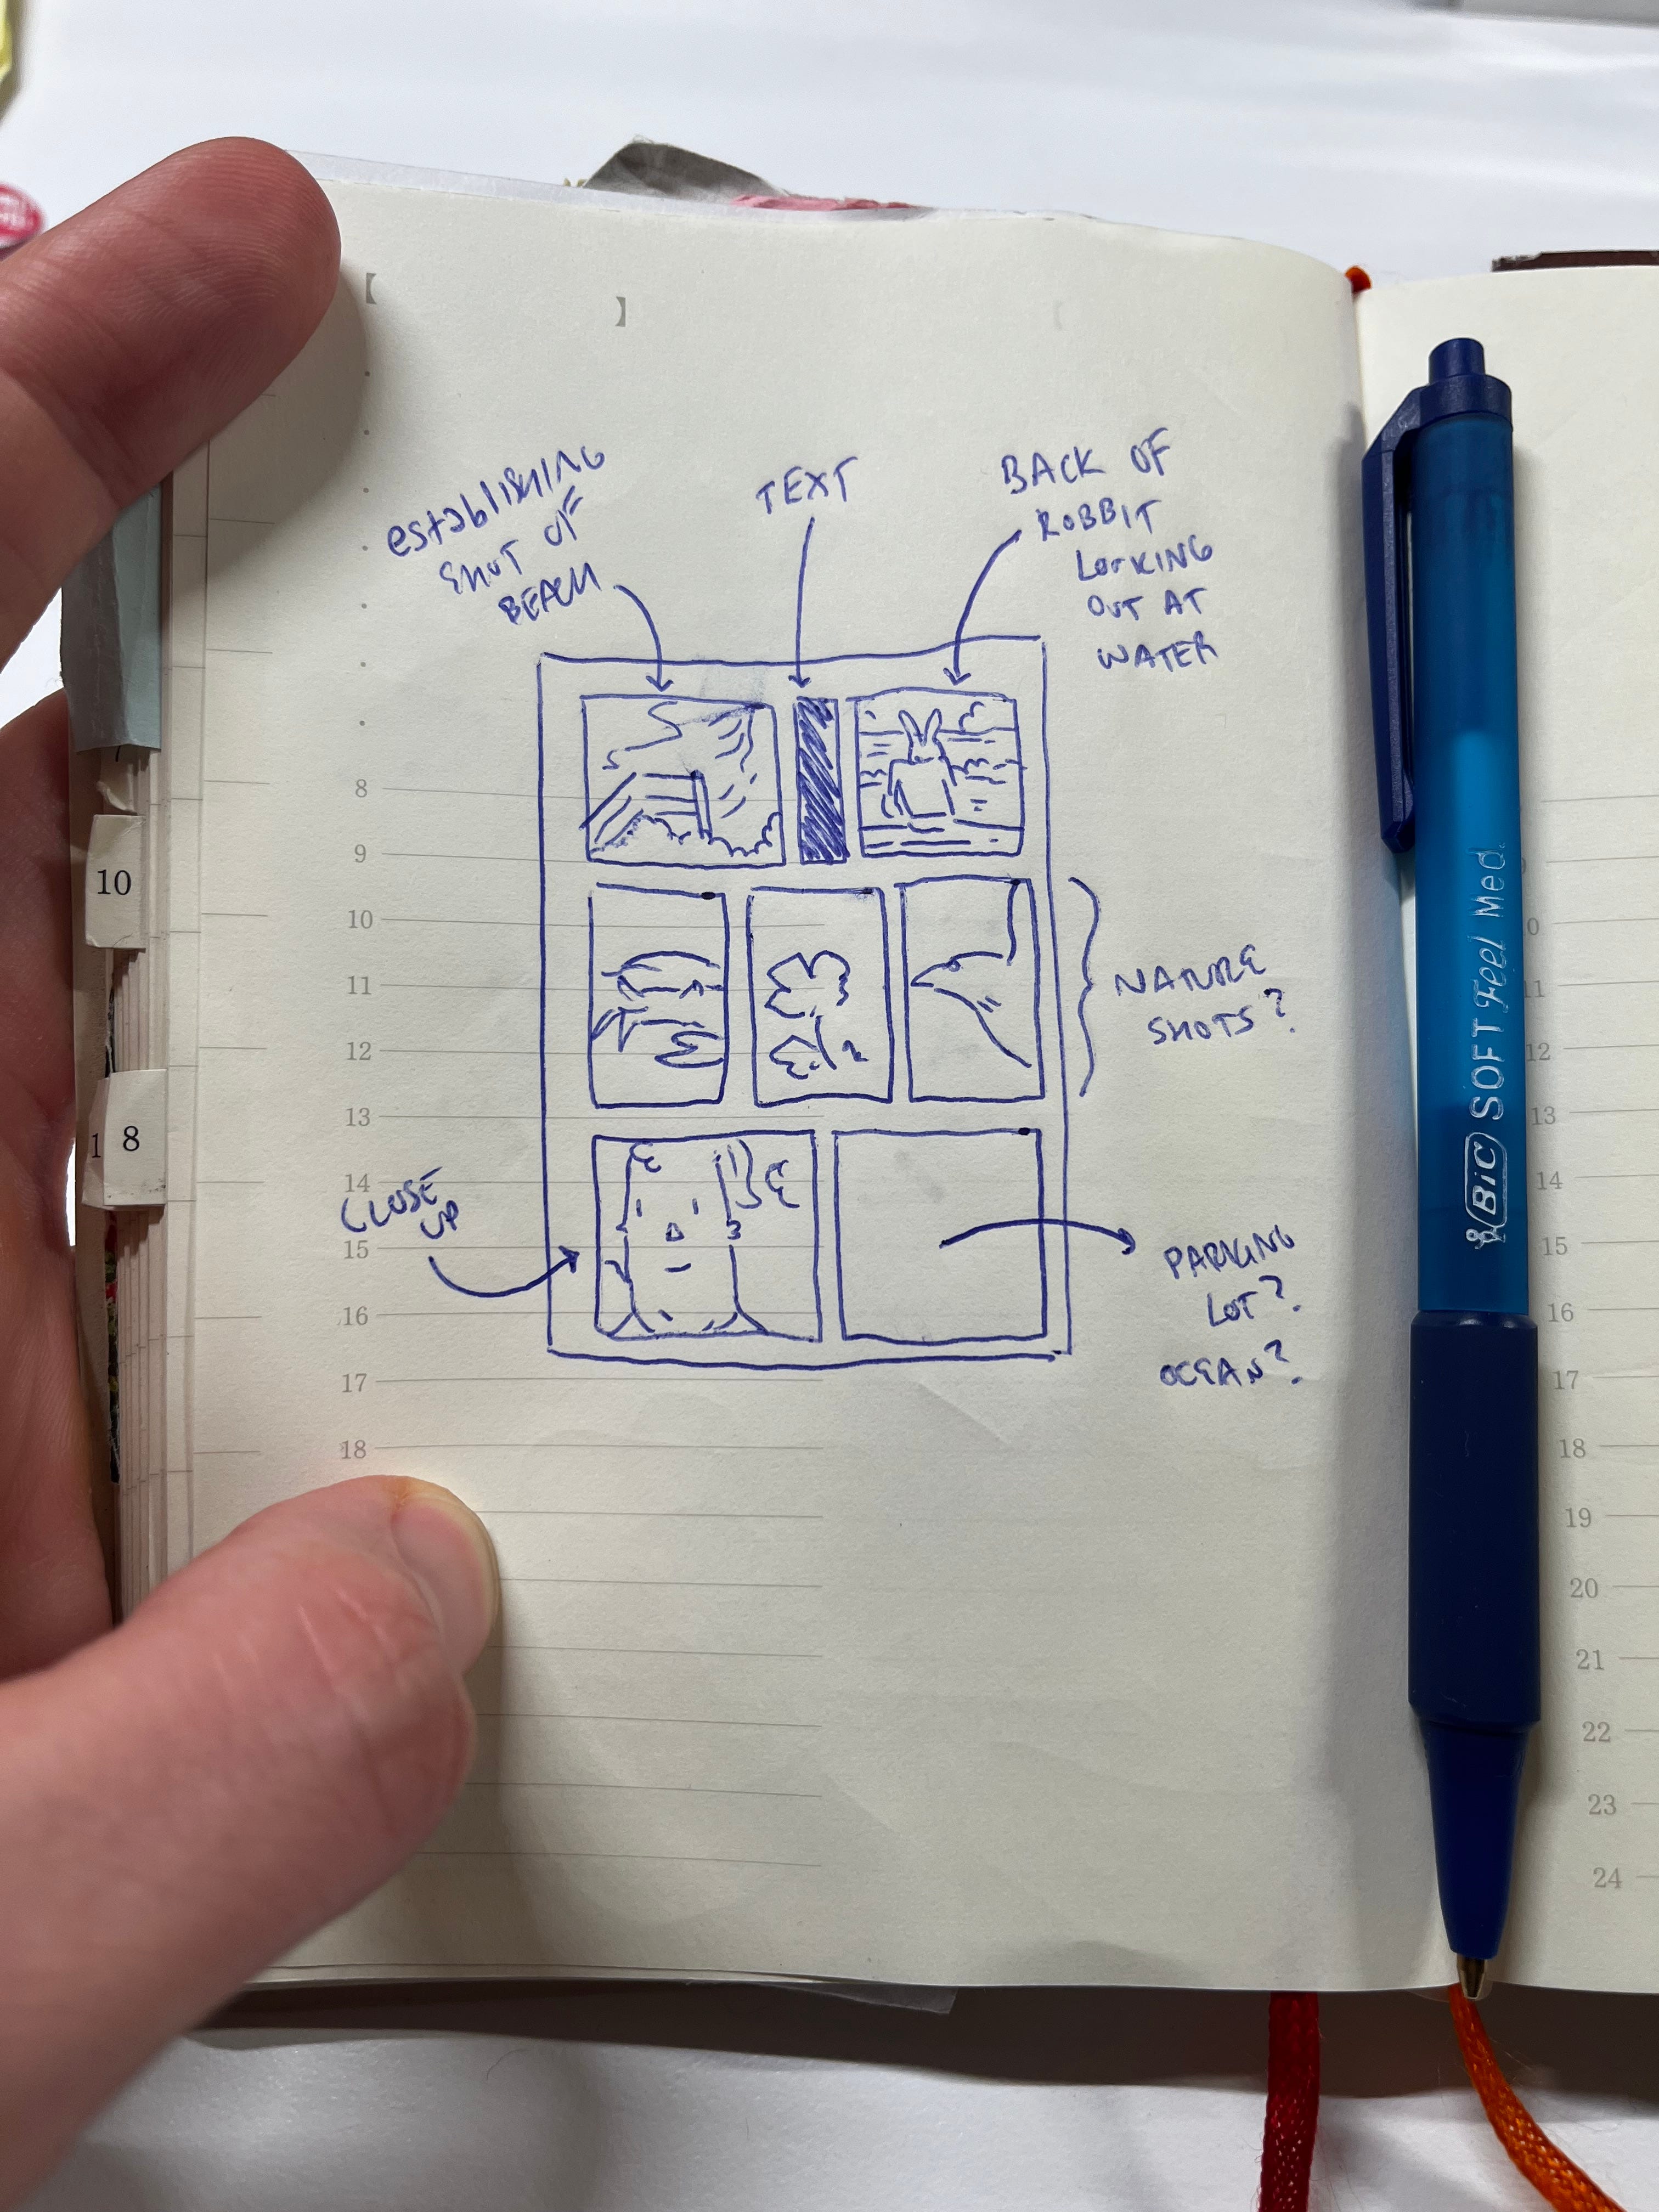 【
】
establishing
SHOT OF
BEACH
TEXT
BACK OF
RABBIT
LOOKING
OUT AT
WATER
NATURE
SHOTS?
CLOSE
UP
PARKING
LOT?
OCEAN?
8
9
10
11
12
13
14
15
16
17
18
10
1
8
BIC SOFT Feel Med.
0
11
12
13
14
15
16
17
18
19
20
21
22
23
24